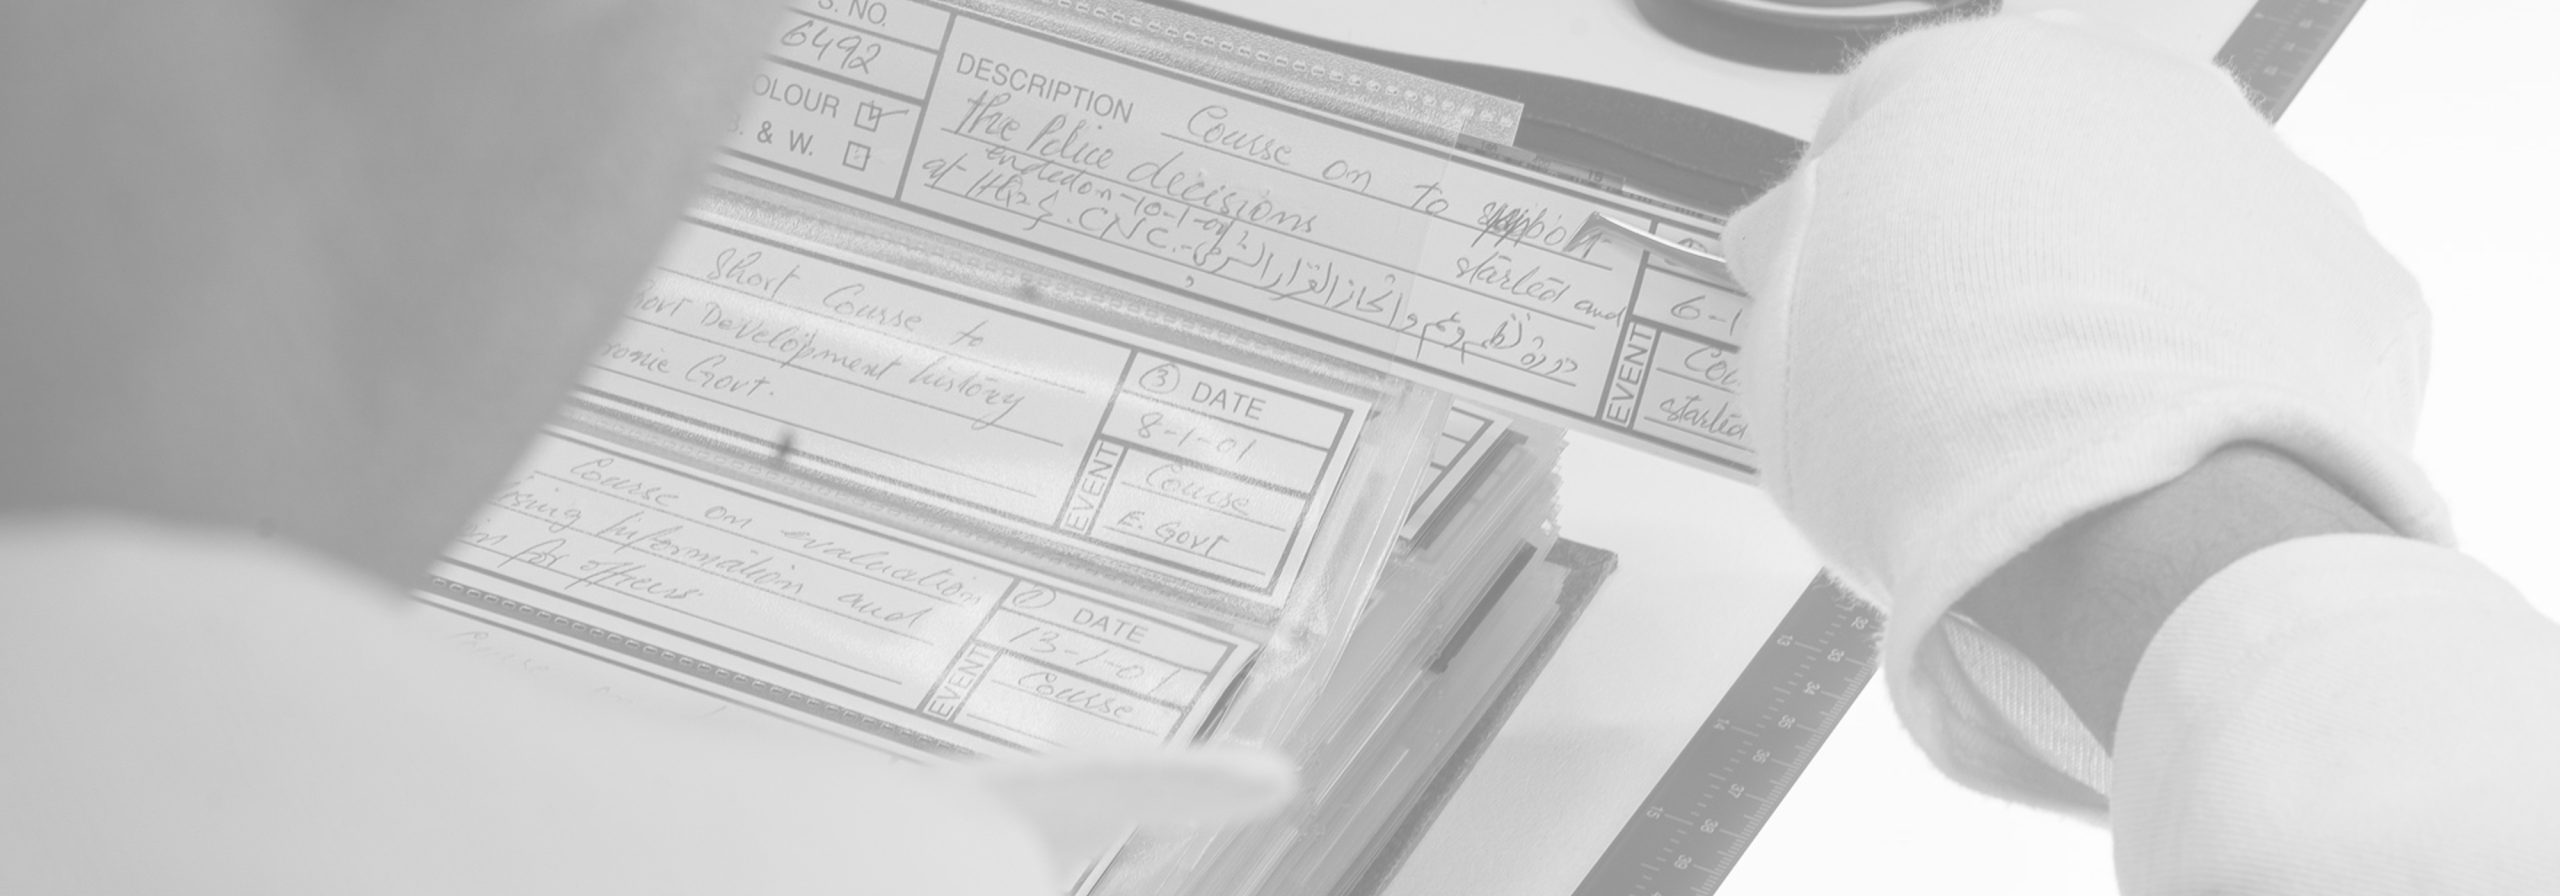 S. NO.
6492
OLOUR
B. & W.
DESCRIPTION Course on to support
the Police decisions started and
ended on-10-1-01
at CNC.- دورة دعم و اتخاذ القرار
6-1
EVENT
Cou
started
Short Course to
Development history
ronic Govt.
3 DATE
8-1-01
EVENT
Course
E. Govt
Course on evaluation
using Information and
for officers.
DATE
13-1-01
EVENT
Course
13
32
33
34
14
35
36
37
15
38
39